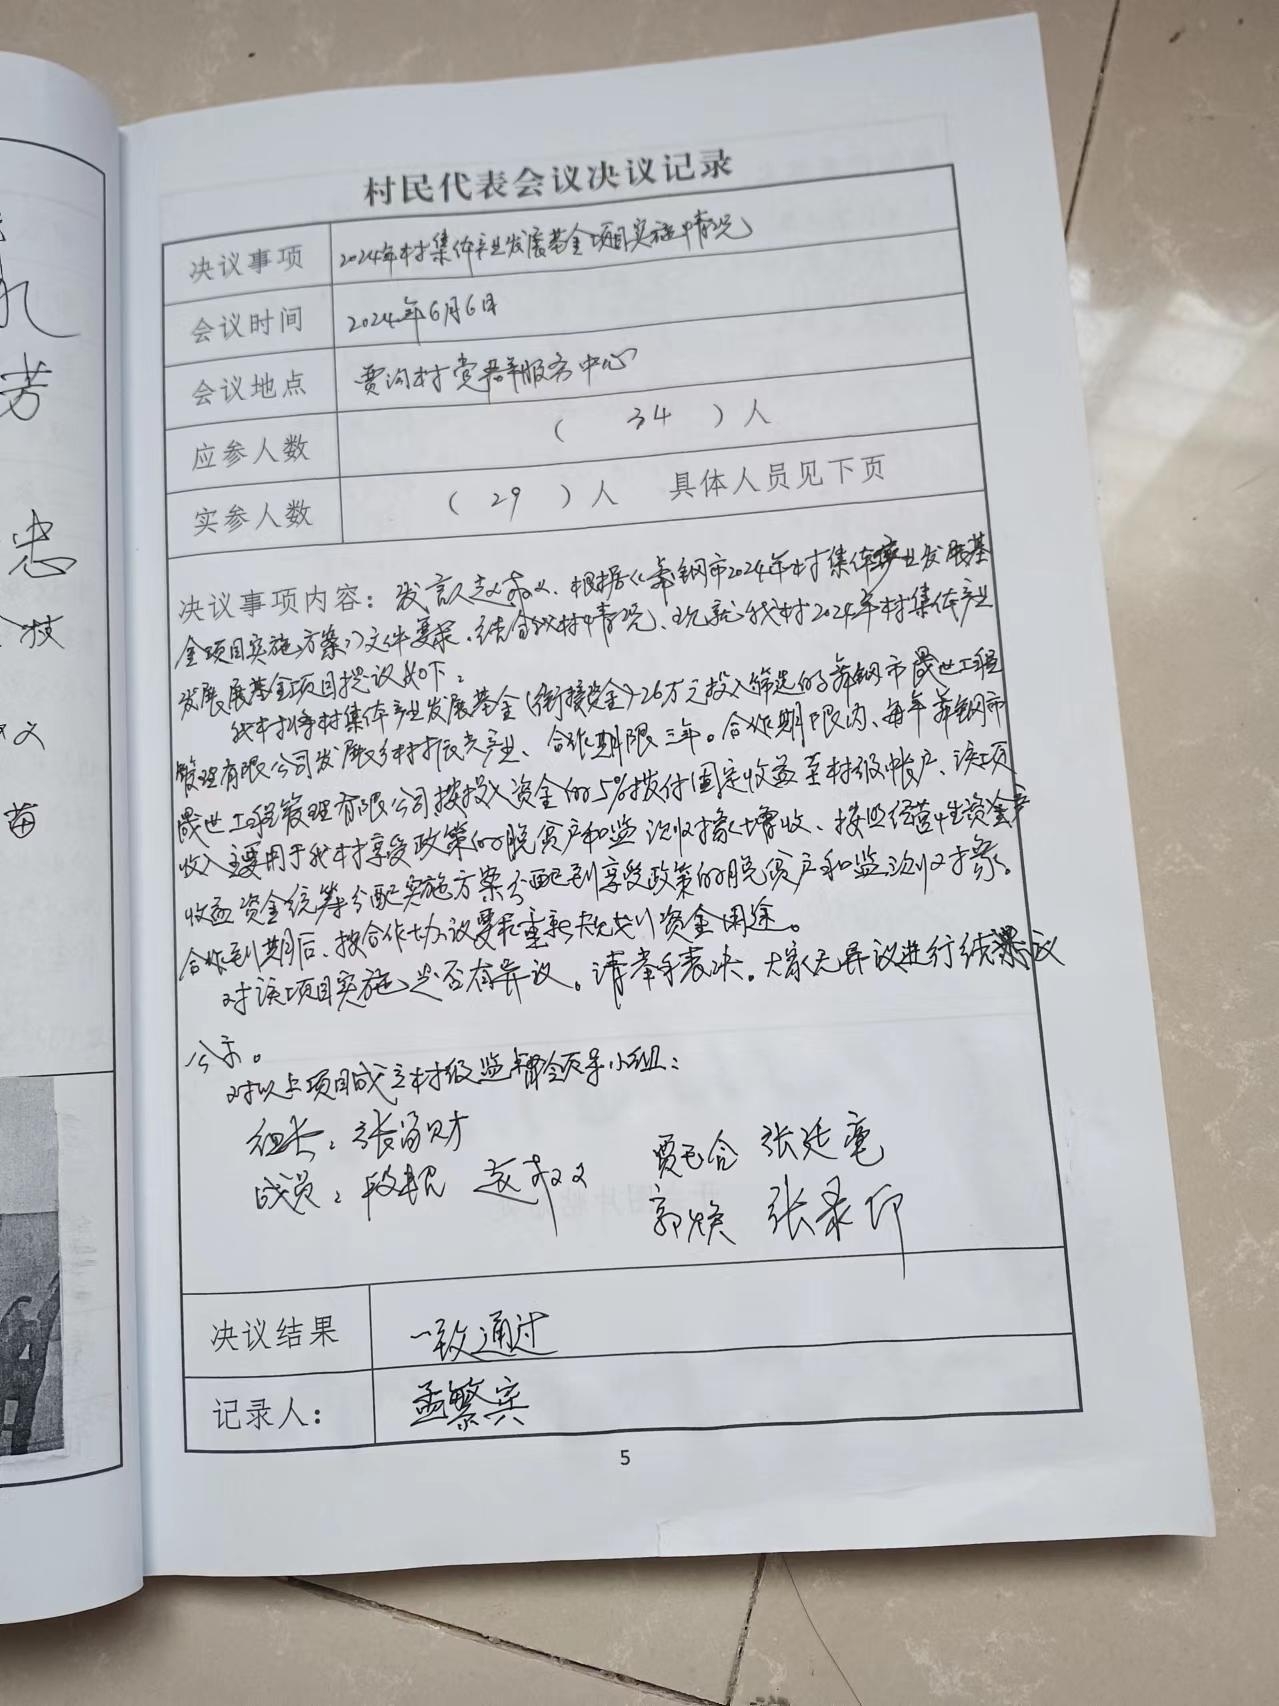 村民代表会议决议记录
决议事项 2024年村集体产业发展基金项目实施情况
会议时间 2024年6月6日
会议地点 贾沟村党群服务中心
应参人数 ( 34 ) 人
实参人数 ( 29 ) 人 具体人员见下页
决议事项内容：发言人赵叔义、根据《舞钢市2024年村集体产业发展基
金项目实施方案》文件要求、结合我村情况、现就我村2024年村集体产业
发展基金项目提议如下：
我村拟将村集体产业发展基金(衔接资金)26万元投入筛选的舞钢市晟世工程
管理有限公司发展乡村振兴产业、合作期限三年。合作期限内、每年舞钢市
晟世工程管理有限公司按投入资金的5%拨付固定收益至村级帐户、该项
收入主要用于我村享受政策的脱贫户和监测对象增收、按照经营性资金产
收益资金统筹分配实施方案分配到享受政策的脱贫户和监测对象。
合作到期后、按合作协议要求重新规划资金用途。
对该项目实施是否有异议。请举手表决。大家无异议进行结果
公示。
对以上项目成立村级监督领导小组：
组长：张富财
成员：段 赵叔义 贾 合 张廷亳
郭焕 张录印
决议结果 一致通过
记录人： 孟繁宾
5
忠
芳
枝
义
苗